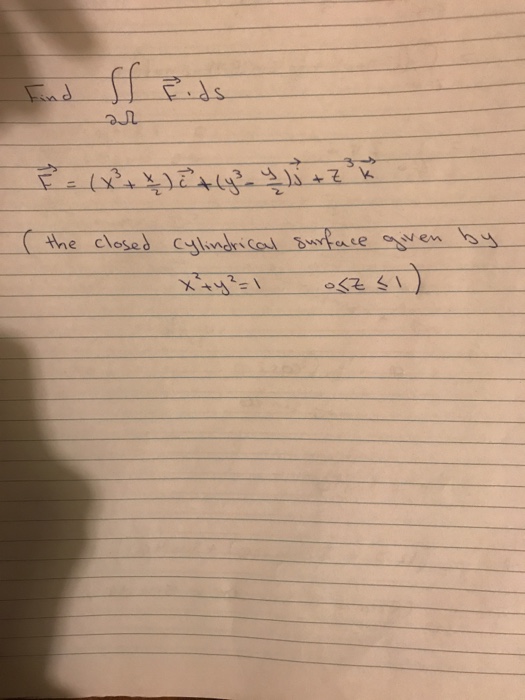 Find ∬ F⃗ · ds
∂Ω
F⃗ = (x³ + x/2) i⃗ + (y³ - y/2) j⃗ + z³ k⃗
( the closed cylindrical surface given by
x² + y² = 1 0 ≤ z ≤ 1 )